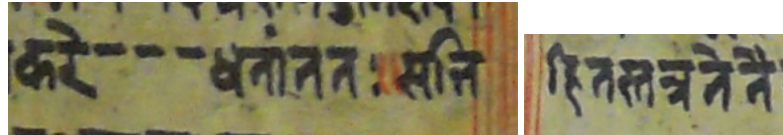 करे - - - धतांततः सन्नि
हितस्तत्र ते नै